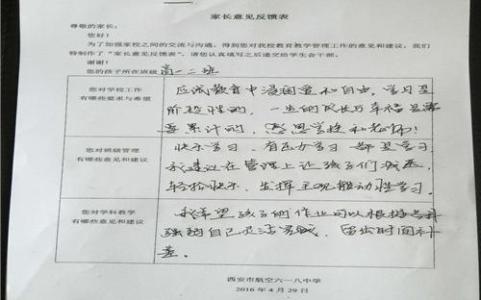 家长意见反馈表
尊敬的家长：
您好！
为了加强家校之间的交流与沟通，得到您对我校教育教学管理工作的意见和建议，我们
特制作了“家长意见反馈表”，请您认真填写之后递交给学生会干部。
谢谢！
您的孩子所在班级 高一二班
您对学校工作
有哪些要求与希望
应试教育中
学习是
阶段性的，一生的成长与幸福是需
要累计的，感恩学校和老师！
您对班级管理
有哪些意见和建议
快乐学习、有压力学习 都是学习
我建议在管理上让孩子们减压，
轻松快乐、发挥主观能动性学习。
您对学科教学
有哪些意见和建议
我希望孩子的作业可以根据
强弱自己
留出时间补
差。
西安市航空六一八中学
2016 年 4 月 29 日